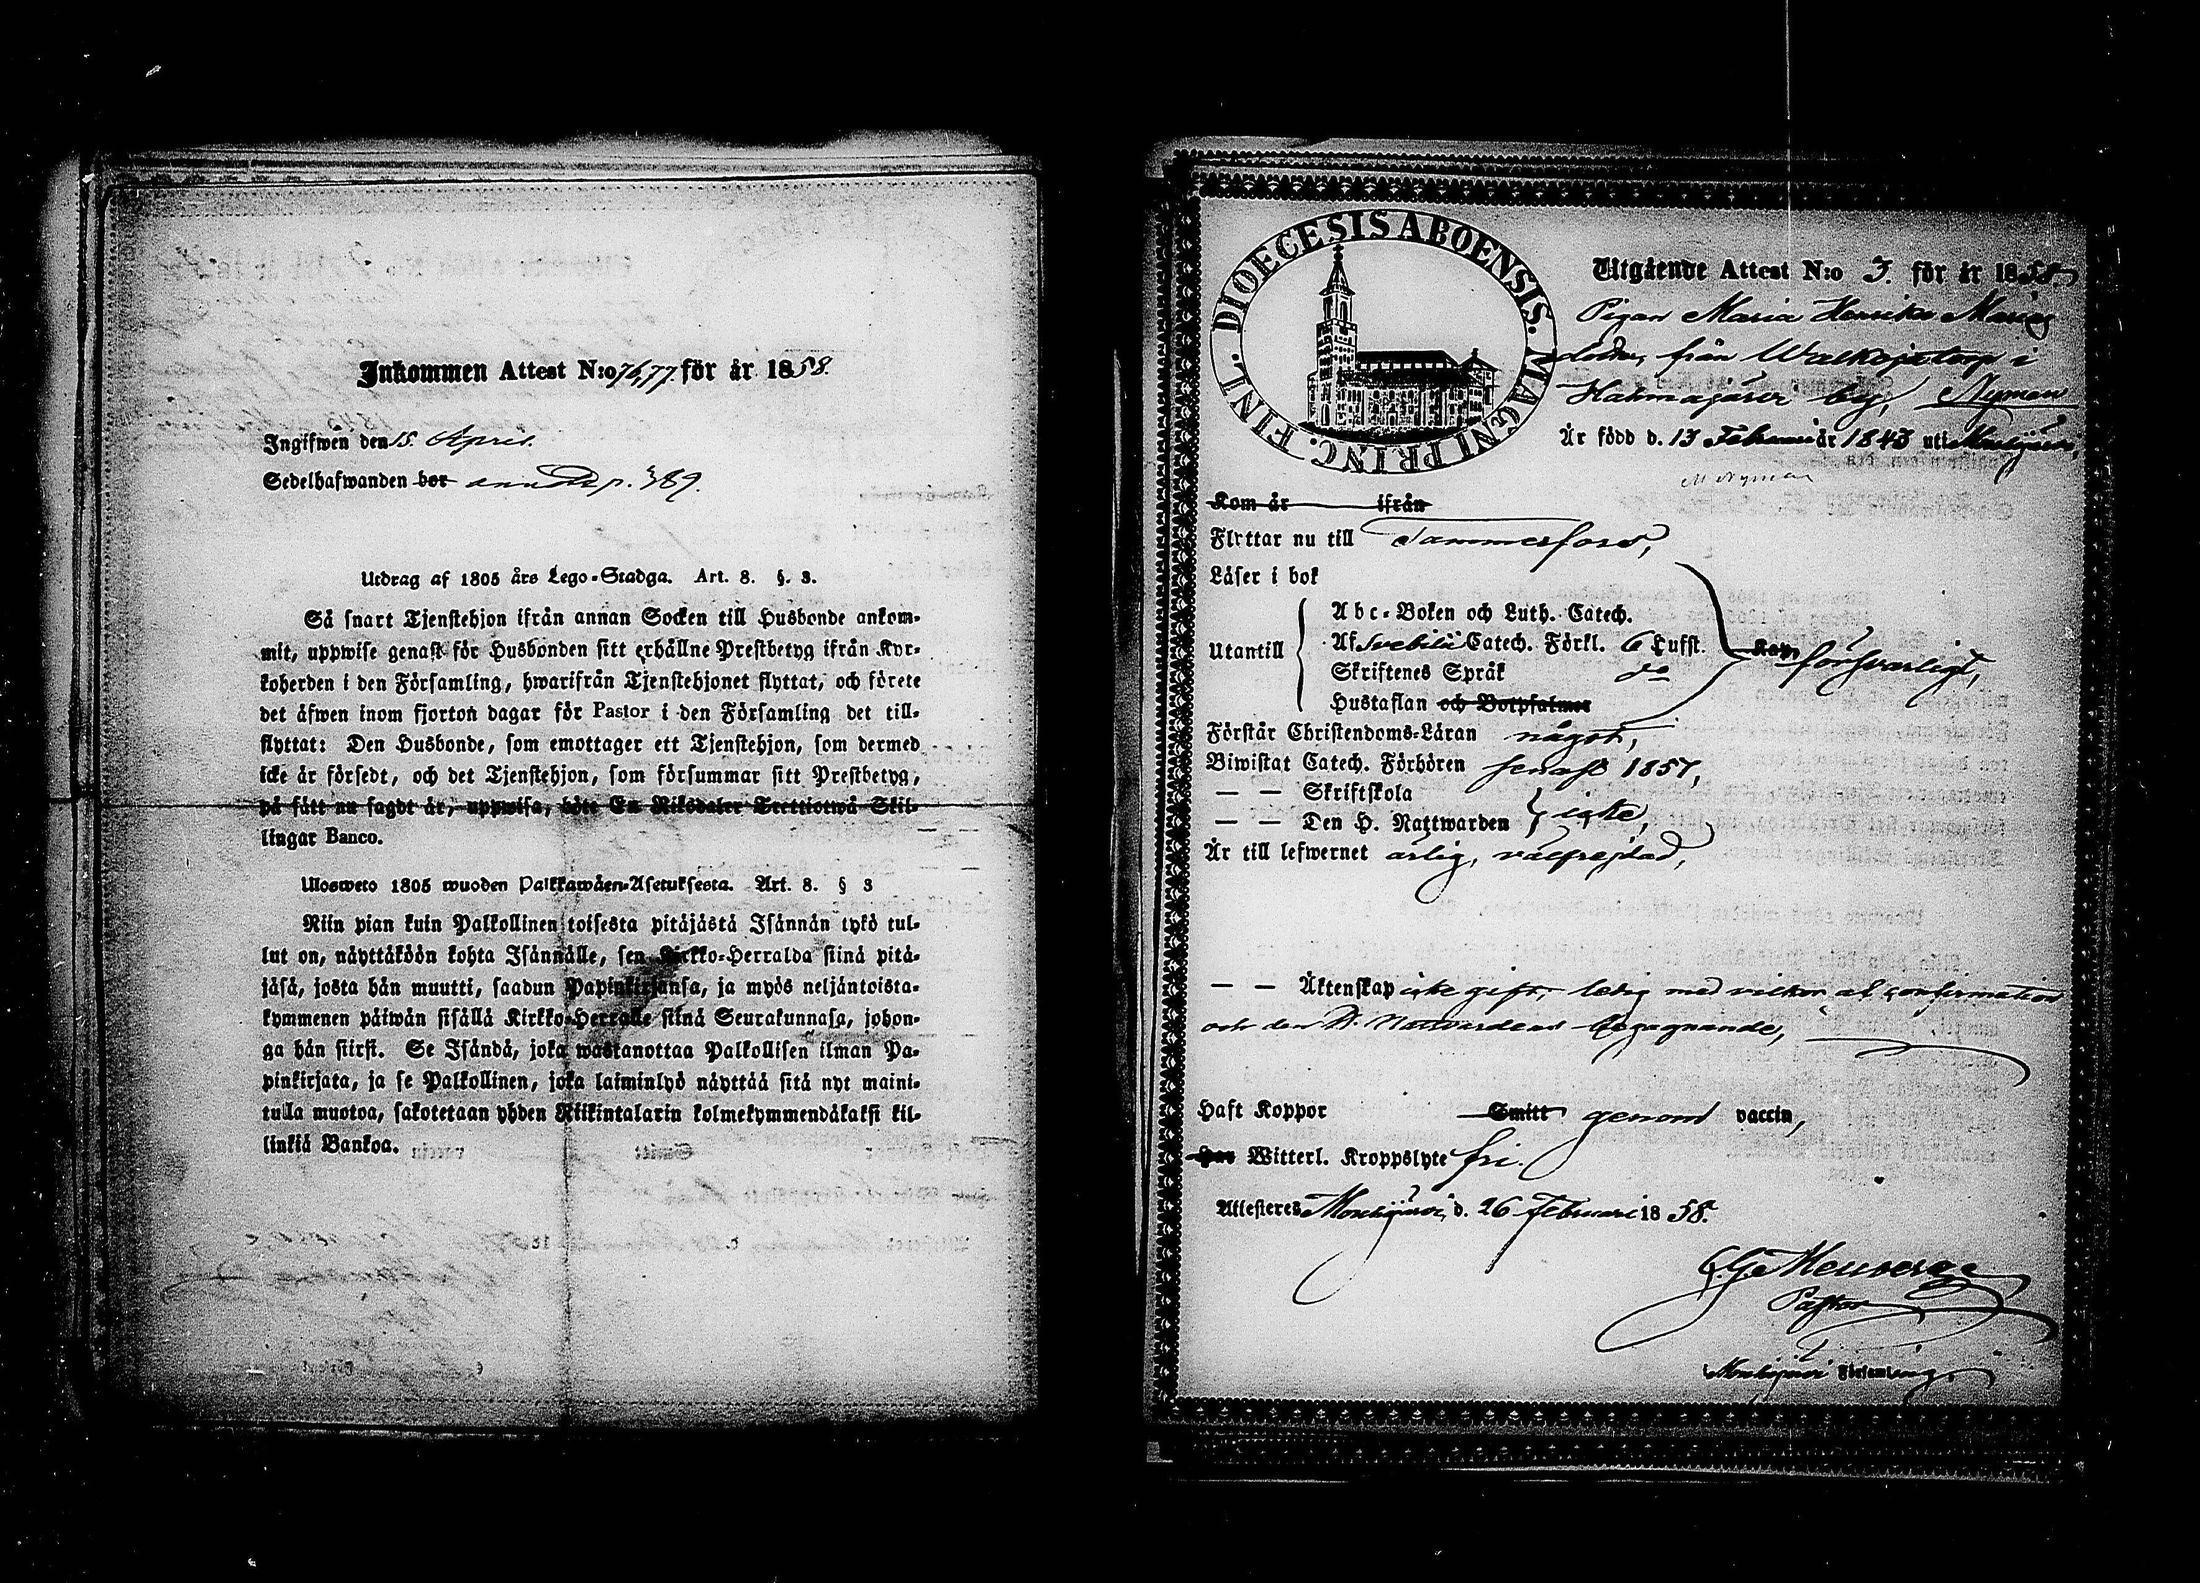 Inkommen Attest N:o 76,77. för år 1858.
Ingifwen den 15. April.
Sedelhafwanden bor p. 389.
Utdrag af 1805 års Lego-Stadga. Art. 8. §. 3.
Så snart Tjenstehjon ifrån annan Socken till Husbonde ankom-
mit, uppwise genast för Husbonden sitt erhållne Prestbetyg ifrån Kyr-
koherden i den Församling, hwarifrån Tjenstehjonet flyttat, och förete
det äfwen inom fjorton dagar för Pastor i den Församling det till-
flyttat: Den Husbonde, som emottager ett Tjenstehjon, som dermed
icke är försedt, och det Tjenstehjon, som försummar sitt Prestbetyg,
på sätt nu sagdt är, uppwisa, böte En Riksdaler Trettiotwå Skil-
lingar Banco.
Ulosweto 1805 wuoden Palkkawäen-Asetuksesta. Art. 8. § 3
Niin pian kuin Palkollinen toisesta pitäjästä Isännän tykö tul-
lut on, näyttäköön kohta Isännälle, sen Kirkko-Herralda siinä pitä-
jäsä, josta hän muutti, saadun Papinkirjansa, ja myös neljäntoista-
kymmenen päiwän sisällä Kirkko-Herralle siinä Seurakunnasa, johon-
ga hän siirsi. Se Isändä, joka wastanottaa Palkollisen ilman Pa-
pinkirjata, ja se Palkollinen, joka laiminlyö näyttää sitä nyt maini-
tulla muotoa, sakotetaan yhden Riikintalarin kolmekymmendäkaksi kil-
linkiä Bankoa.
FINL. DIOECESIS ABOENSIS. MAGNI PRINC.
Utgående Attest N:o 3. för år 1858
Pigan Maria Henrika Marias
dotter, från Walkojatorp i
Hakmajärvi by, Nyman
Är född d. 13 Februari år 1843 uti Mouhijärvi,
M Nyman
Kom år ifrån
Flyttar nu till Tammerfors,
Läser i bok
Abc-Boken och Luth. Catech.
Utantill Af Svebilii Catech. Förkl. 6 Lufst. Kap. försvarligt,
Skriftenes Språk do
Hustaflan och Botpsalmer
Förstår Christendoms-Läran något,
Biwistat Catech. Förhören senast 1857,
— — Skriftskola
— — Den H. Nattwarden } icke,
Är till lefwernet ärlig, välfrejdad,
— — Äktenskap icke gift, ledig med vilkor af confirmation
och den H. Nattvardens begagnande,
Haft Koppor Smitt genom vaccin,
Har Witterl. Kroppslyte fri.
Attesteres Mouhijärvi, d. 26 Februari 1858.
Pastor
Mouhijärvi Församling.